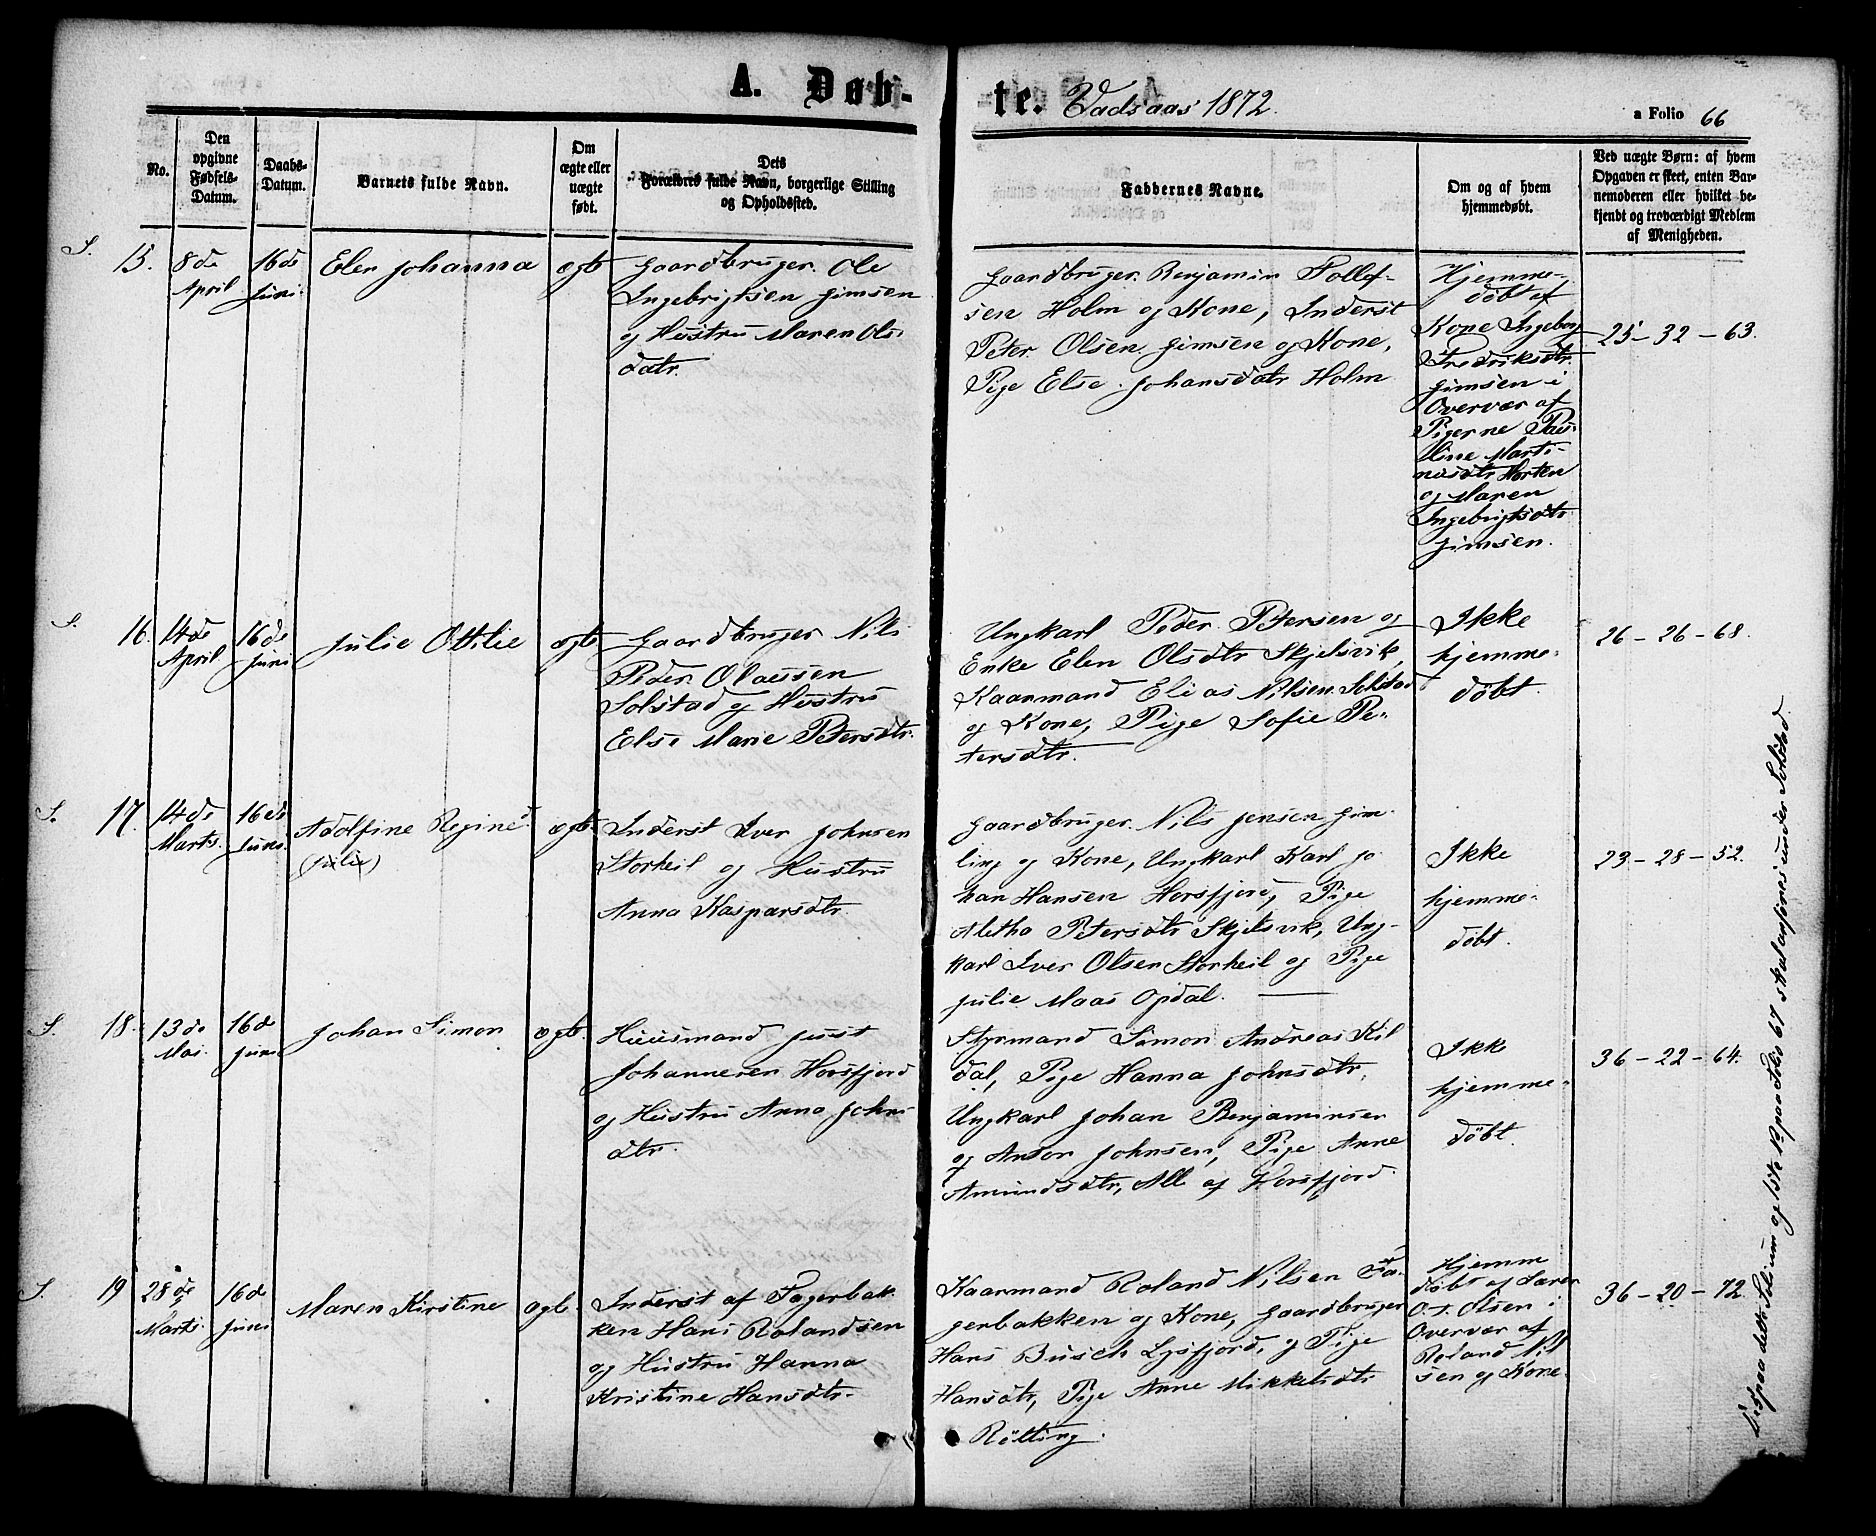 A. Døb-
te. Vadsaas 1872.
a Folio 66
No.
Den
opgivne
Fødsels-
Datum.
Daabs-
Datum.
Barnets fulde Navn.
Om
ægte eller
uægte
født.
Dets
Forældres fulde Navn, borgerlige Stilling
og Opholdssted.
Faddernes Navne.
Om og af hvem
hjemmedøbt.
Ved uægte Børn: af hvem
Opgaven er skeet, enten Bar-
nemoderen eller hvilket be-
kjendt og troværdigt Medlem
af Menigheden.
S. 15.
8de
April
16de
Juni.
Elen Johanna
ægte
Gaardbruger Ole
Ingebrigtsen Gimsen
og Hustru Maren Ols-
datr.
Gaardbruger Benjamin Tollef-
sen Holm og Kone, Inderst
Peter Olsen Gimsen og Kone,
Pige Else Johansdatr Holm
Hjemme-
døbt af
Kone Ingeborg
Fredriksdtr.
Gimsen i
Overvær af
Pigerne Pau-
line Marti-
nusdtr Horten
og Maren
Ingebrigtsdtr
Gimsen.
25-32-63.
S. 16.
14de
April
16de
Juni
Julie Ottilie
ægte
Gaardbruger Nils
Peder Olaussen
Solstad og Hustru
Else Marie Petersdtr.
Ungkarl Peder Petersen og
Enke Elen Olsdtr Skjelsvik,
Kaarmand Elias Nilsen Solstad
og Kone, Pige Sofie Pe-
tersdtr.
Ikke
hjemme-
døbt.
26-26-68.
S. 17.
14de
Marts.
16de
Juni.
Adolfine Regine
(Julie)
ægte
Inderst Iver Johnsen
Storheil og Hustru
Anna Kaspersdtr.
Gaardbruger Nils Jensen Gim-
ling og Kone, Ungkarl Karl Jo
han Hansen Horsfjord, Pige
Aletha Petersdtr Skjelsvik, Ung-
karl Iver Olsen Storheil og Pige
Julie Maas Opdal.
Ikke
hjemme-
døbt.
23-28-52.
S. 18.
13de
Mai.
16de
Juni
Johan Simon
ægte.
Huusmand Just
Johannesen Horsfjord
og Hustru Anna Johns
dtr.
Styrmand Simon Andreas Kil
dal, Pige Hanna Johnsdtr,
Ungkarl Johan Benjaminsen
og Anton Johnsen, Pige Anne
Amundsdtr, Alle af Horsfjord
Ikke
hjemme-
døbt.
36-22-64.
S. 19
28de
Marts.
16de
Juni
Maren Kirstine
ægte.
Inderst af Fagerbak-
ken Hans Rolandsen
og Hustru Hanna
Kristine Hansdtr.
Kaarmand Roland Nilsen Fa-
gerbakken og Kone, Gaardbruger
Hans Busch Lysfjord, og Pige
Hansdtr, Pige Anne Mikkelsdtr
Røtting.
Hjemme
døbt af Søren
Olsen i
Overvær af
Roland Nil
sen og Kone.
36-20-72.
paa dette Folium og 1ste paa Folio 67 skal anføres under Solstad